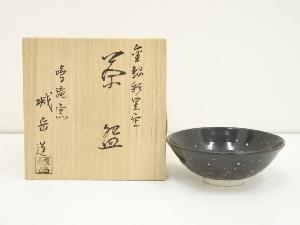 金銀彩星空
茶盌
鳴滝窯
城岳造